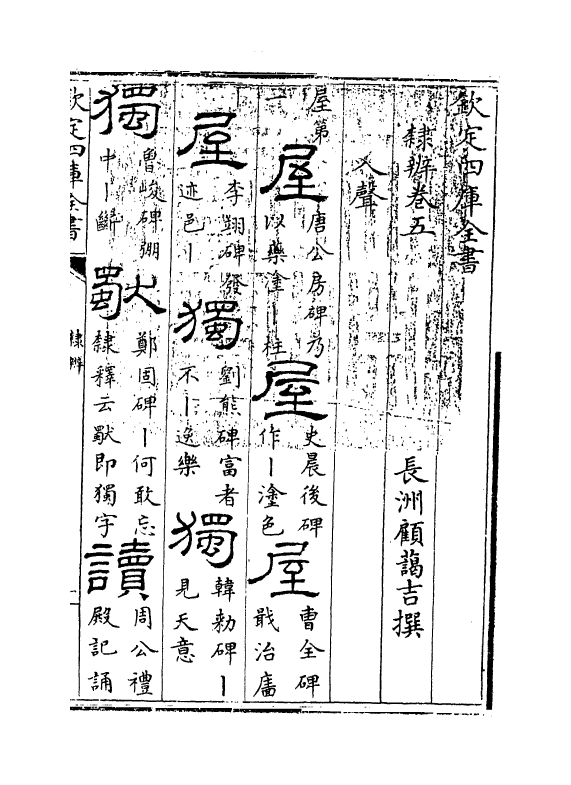 欽定四庫全書
隸辨卷五
長洲顧藹吉撰
入聲
屋第一
屋唐公房碑乃以藥塗丨柱屋史晨後碑作丨塗色屋曹全碑戢治廧
屋李翊碑發迹邑丨獨劉熊碑富者不丨逸樂獨韓勑碑丨見天意
獨曹峻碑弸中丨斷獸鄭固碑丨何敢忘隸釋云獸即獨字讀周公禮殿記誦
欽定四庫全書
隸辨